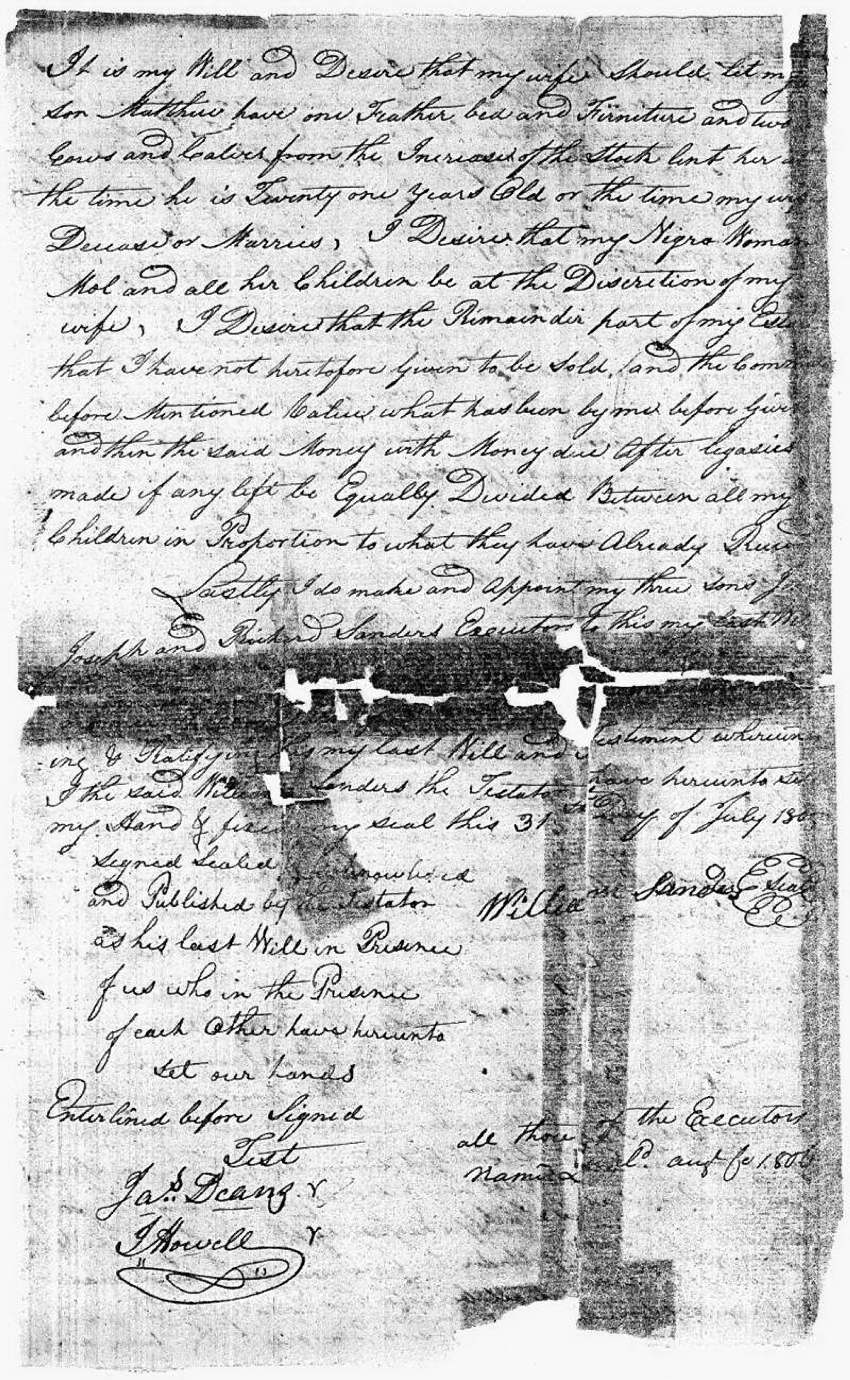 It is my Will and Desire that my wife should let my
son Matthew have one Feather bed and Firniture and two
Cows and Calves from the Increase of the Stock lent her at
the time he is Twenty one Years Old or the time my wife
Decease or Marries, I Desire that my Negro Woman
Mol and all her Children be at the Discretion of my
wife, I Desire that the Remainder part of my
that I have not heretofore Given to be Sold, and the
before Mentioned Value what has been by me before
and then the said Money with Money due After legasies
made if any left be Equally Divided Between all my
Children in Proportion to what they have Already
Lastly I do make and Appoint my three sons
Joseph and Richard Sanders Executors to this my last
ing & Ratifying this my last Will and Testiment
I the said William Sanders the Testator have hereunto
my Hand & my seal this 31st Day of July
Signed Sealed
and Published by the Testator
William Sanders Seal
as his last Will in Presence
of us who in the Presence
of each Other have hereunto
set our hands
Enterlined before Signed
all three of the Executors
Test
named aug
Jas. Deans
J Howell